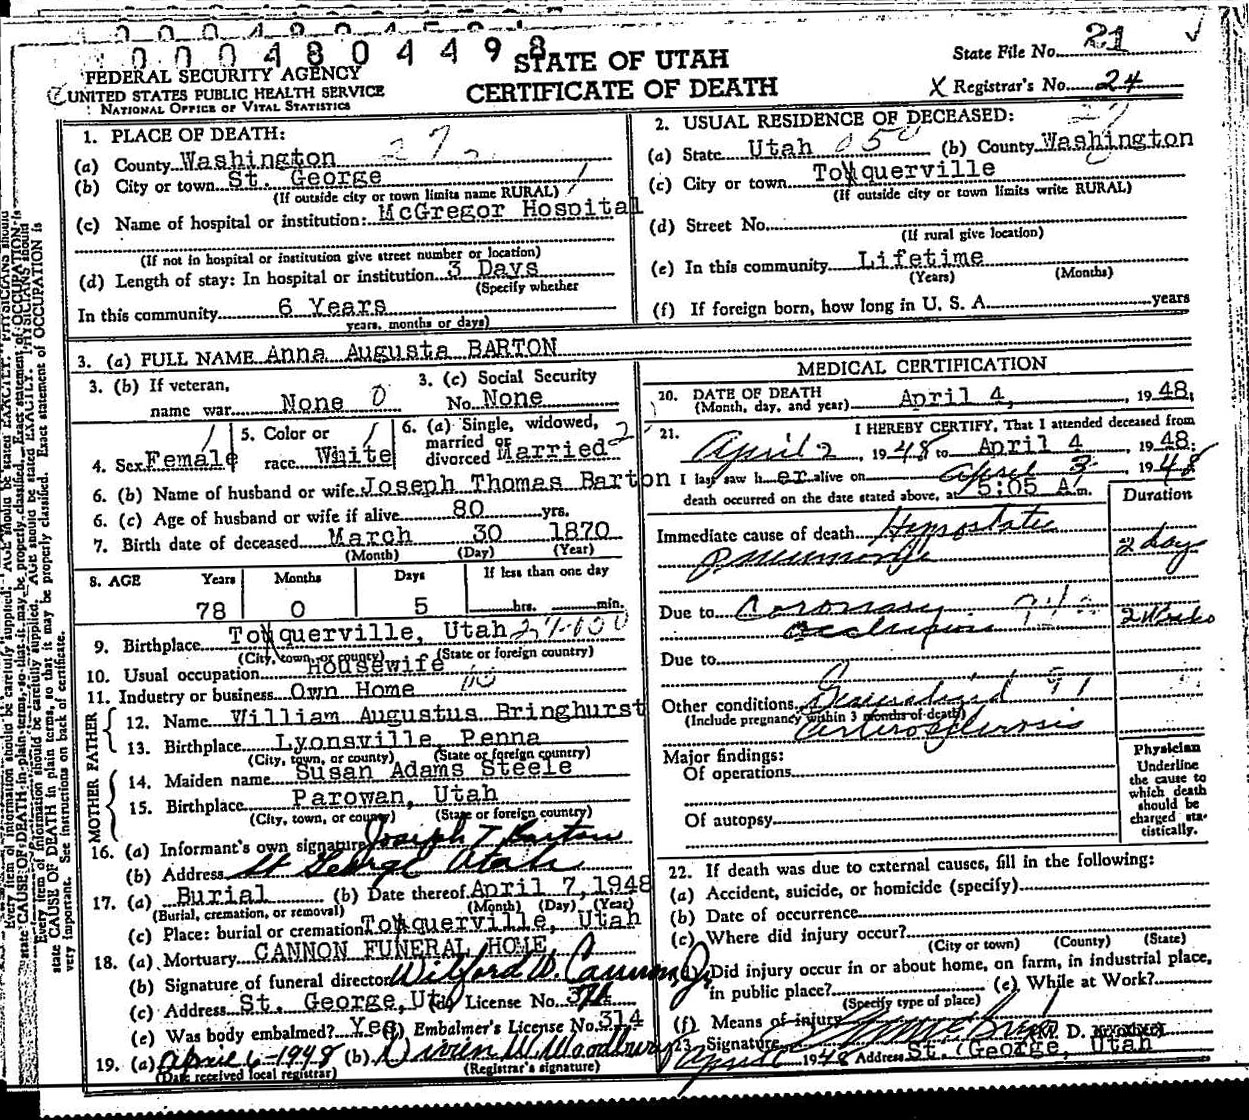 0 0 0 4 8 0 4 4 9 8
STATE OF UTAH
CERTIFICATE OF DEATH
FEDERAL SECURITY AGENCY
UNITED STATES PUBLIC HEALTH SERVICE
NATIONAL OFFICE OF VITAL STATISTICS
State File No. 21
X Registrar's No. 24
1. PLACE OF DEATH: 27
(a) County Washington
(b) City or town St. George
(If outside city or town limits name RURAL)
(c) Name of hospital or institution: McGregor Hospital
(If not in hospital or institution give street number or location)
(d) Length of stay: In hospital or institution 3 Days
(Specify whether
In this community 6 Years
years, months or days)
2. USUAL RESIDENCE OF DECEASED: 27
(a) State Utah 050 (b) County Washington
(c) City or town Toquerville
(If outside city or town limits write RURAL)
(d) Street No.
(If rural give location)
(e) In this community Lifetime
(Years) (Months)
(f) If foreign born, how long in U. S. A. years
3. (a) FULL NAME Anna Augusta BARTON
3. (b) If veteran, name war None 0
3. (c) Social Security No. None
4. Sex Female
5. Color or race White
6. (a) Single, widowed, married or divorced Married 2
6. (b) Name of husband or wife Joseph Thomas Barton
6. (c) Age of husband or wife if alive 80 yrs.
7. Birth date of deceased March 30 1870
(Month) (Day) (Year)
8. AGE Years Months Days If less than one day
78 0 5 hrs. min.
9. Birthplace Toquerville, Utah
(City, town, or county) (State or foreign country)
10. Usual occupation Housewife
11. Industry or business Own Home
FATHER
12. Name William Augustus Bringhurst
13. Birthplace Lyonsville, Penna
(City, town, or county) (State or foreign country)
MOTHER
14. Maiden name Susan Adams Steele
15. Birthplace Parowan, Utah
(City, town, or county) (State or foreign country)
16. (a) Informant's own signature Joseph T Barton
(b) Address St George Utah
17. (a) Burial (b) Date thereof April 7, 1948
(Burial, cremation, or removal) (Month) (Day) (Year)
(c) Place: burial or cremation Toquerville, Utah
18. (a) Mortuary CANNON FUNERAL HOME
(b) Signature of funeral director Wilford W. Cannon, Jr.
(c) Address St. George, Ut (d) License No. 374
(e) Was body embalmed? Yes (f) Embalmer's License No. 314
19. (a) April 6-1948 (b)
(Date received local registrar) (Registrar's signature)
MEDICAL CERTIFICATION
20. DATE OF DEATH
(Month, day, and year) April 4, , 1948.
21. I HEREBY CERTIFY, That I attended deceased from
April 2, 1948 to April 4 1948.
I last saw her alive on April 3 1948
death occurred on the date stated above, at 5:05 A m.
Duration
Immediate cause of death Hypostatic
pneumonia 2 days
Due to Coronary
occlusion 2 Weeks
Due to
Other conditions Generalized
(Include pregnancy within 3 months of death)
arteriosclerosis
Major findings:
Of operations
Of autopsy
Physician
Underline
the cause to
which death
should be
charged sta-
tistically.
22. If death was due to external causes, fill in the following:
(a) Accident, suicide, or homicide (specify)
(b) Date of occurrence
(c) Where did injury occur?
(City or town) (County) (State)
(d) Did injury occur in or about home, on farm, in industrial place,
in public place? (e) While at Work?
(Specify type of place)
(f) Means of injury
23. Signature
1948 Address St. George, Utah